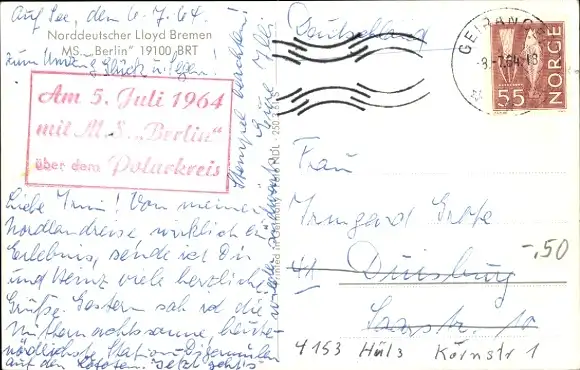 Auf See, den 6.7.64.
Norddeutscher Lloyd Bremen
MS. „Berlin“ 19100 BRT
zum Umzug Glück u. Segen!
Am 5. Juli 1964
mit M.S. „Berlin“
über dem Polarkreis
Liebe Irmi! Von meiner
Nordlandreise, wirklich ein
Erlebnis, sende ich Dir
und Heinz viele herzliche
Grüße. Gestern sah ich die
Mitternachtssonne, heute
nördlichste Station Digermulen
auf den Lofoten. Jetzt geht's
wieder
Stempel beachten!
Deutschland
GEIRANGER
-8-7.64.18
NORGE
55
Frau
Irmgard Grote
41 Duisburg
Saarstr. 10
-,50
4153 Hüls Körnstr 1